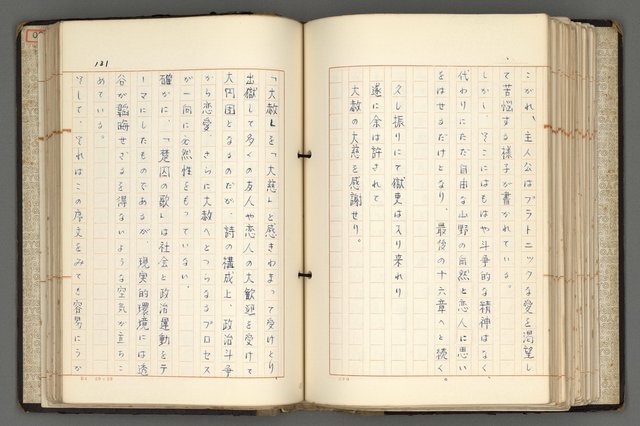 こがれ、主人公はプラトニックな愛を渇望し
て苦悩する様子が書かれている。
しかし、そこにはもはや斗争的な精神はなく、
代わりにただ自由な山野の自然と恋人に思い
をはせるだけとなり、最後の十六章へと続く
久し振りにて獄吏は入り来れり
遂に余は許されて
大赦の大慈を感謝せり。
121
「大赦」を「大慈」と感きわまって受けとり、
出獄して多くの友人や恋人の大歓迎を受けて
大円団となるのだが、詩の構成上、政治斗争
から恋愛、さらに大赦へとつらなるプロセス
が一向に必然性をもっていない。
確かに、「楚囚の歌」は社会と政治運動をテ
ーマにしたものであるが、現実的環境には透
谷が韜晦せざるを得ないような空気が立ちこ
めている。
そして、それはこの序文をみても容易にうか